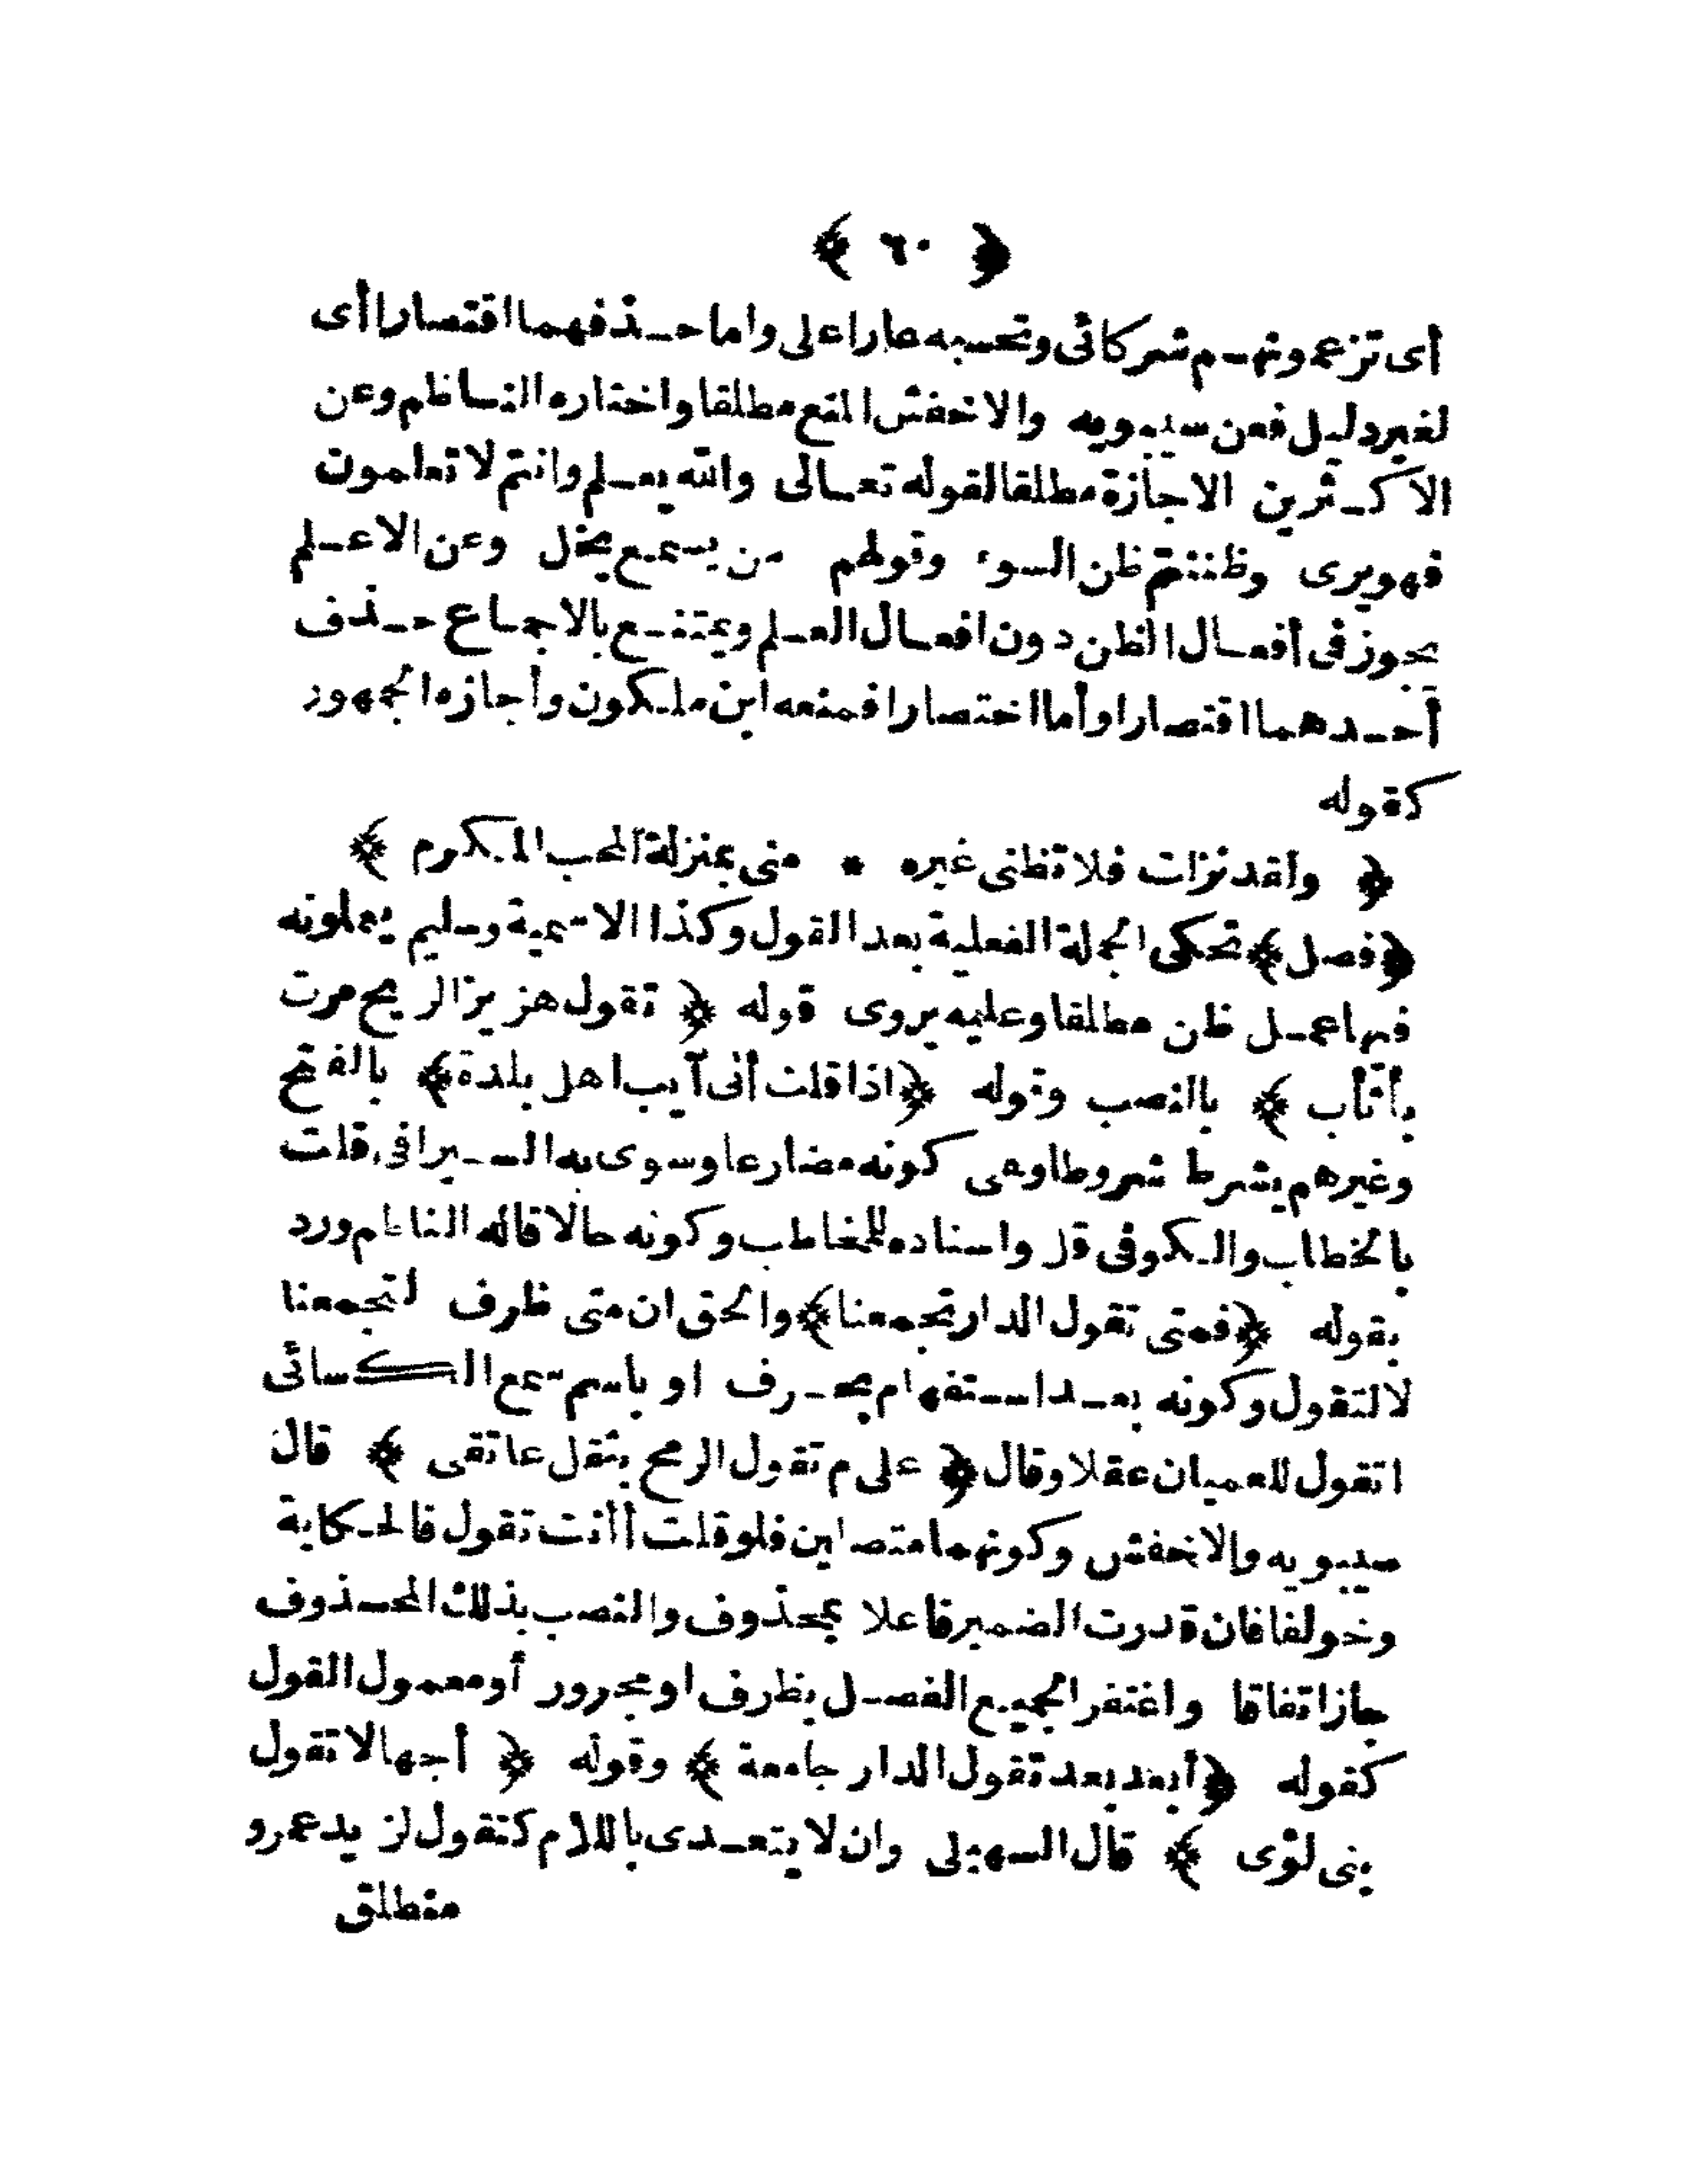 ﴿ ٦٠ ﴾
أى تزعمونهم شركائى وتحسبه عارا على واما حذفهما اقتصارا أى
لغير دليل فعن سيبويه والاخفش المنع مطلقا واختاره الناظم وعن
الاكثرين الاجازة مطلقا لقوله تعالى والله يعلم وانتم لا تعلمون
فهو يرى وظننتم ظن السوء وقولهم من يسمع يخل وعن الاعلم
يجوز فى أفعال الظن دون افعال العلم ويمتنع بالاجماع حذف
أحدهما اقتصارا وأما اختصارا فمنعه ابن ملكون وأجازه الجمهور
كقوله
﴿ ولقد نزلت فلا تظنى غيره * منى بمنزلة المحب المكرم ﴾
﴿فصل﴾ تحكى الجملة الفعلية بعد القول وكذا الاسمية وسليم يعملونه
فيها عمل ظن مطلقا وعليه يروى قوله ﴿ تقول هزيز الريح مرت
بأثأب ﴾ بالنصب وقوله ﴿اذا قلت أنى آيب اهل بلدة﴾ بالفتح
وغيرهم يشرط شروطا وهى كونه مضارعا وسوى به السيرافى قلت
بالخطاب والكوفى قل واسناده للمخاطب وكونه حالا قاله الناظم ورد
بقوله ﴿فمتى تقول الدار تجمعنا﴾ والحق ان متى ظرف لتجمعنا
لا لتقول وكونه بعد استفهام بحرف او باسم سمع الكسائى
اتقول للعميان عقلا وقال ﴿ على م تقول الرمح يثقل عاتقى ﴾ قال
سيبويه والاخفش وكونهما متصلين فلو قلت أأنت تقول فالحكاية
وخولفا فان قدرت الضمير فاعلا بمحذوف والنصب بذلك المحذوف
جاز اتفاقا واغتفر الجميع الفصل بظرف او مجرور أو معمول القول
كقوله ﴿ أبعد بعد تقول الدار جامعة ﴾ وقوله ﴿ أجهالا تقول
بنى لؤى ﴾ قال السهيلى وان لا يتعدى باللام كتقول لزيد عمرو
منطلق